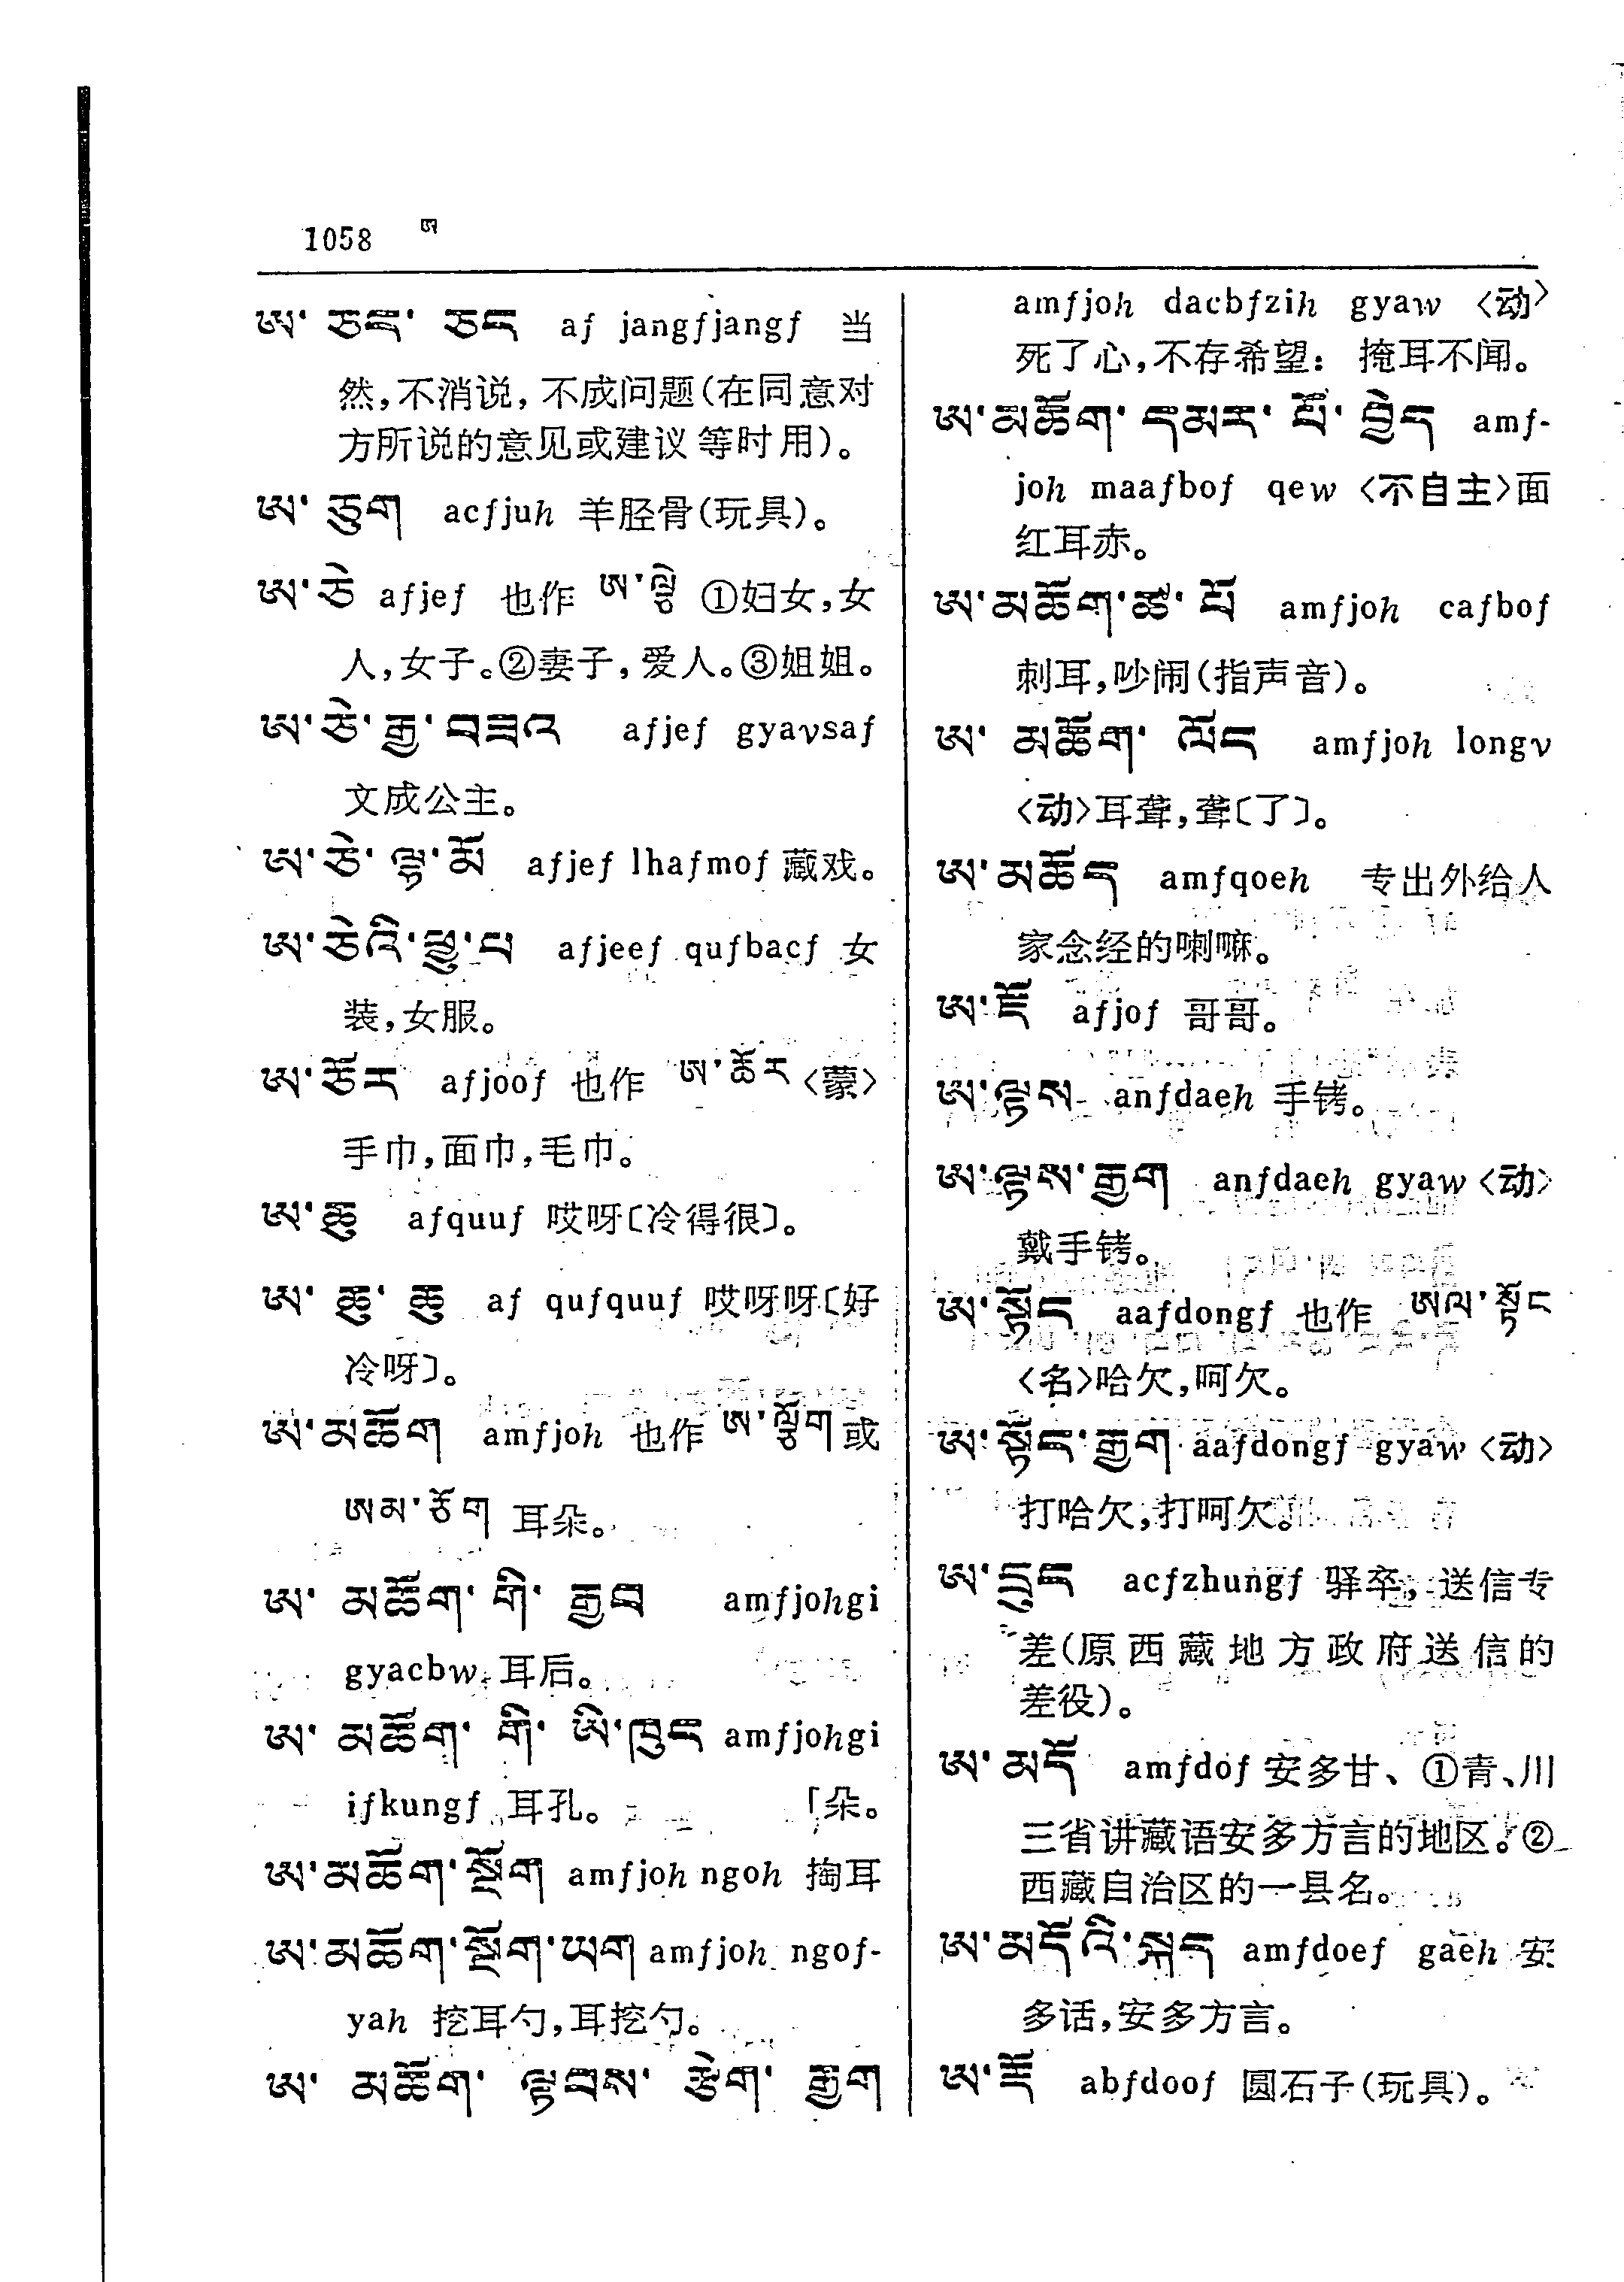 1058 ཨ
ཨ་ཅང་ཅང af jangfjangf 当
然,不消说, 不成问题(在同意对
方所说的意见或建议等时用)。
ཨ་ཅུག acfjuh 羊胫骨(玩具)。
ཨ་ཅེ afjef 也作 ཨ་ལྕེ ①妇女,女
人,女子。②妻子,爱人。③姐姐。
ཨ་ཅེ་རྒྱ་བཟའ afjef gyavsaf
文成公主。
ཨ་ཅེ་ལྷ་མོ afjef lhafmof 藏戏。
ཨ་ཅེའི་ཕྱུ་པ afjeef qufbacf 女
装,女服。
ཨ་ཅོར afjoof 也作 ཨ་ཆོར〈蒙〉
手巾,面巾,毛巾。
ཨ་ཆུ afquuf 哎呀〔冷得很〕。
ཨ་ཆུ་ཆུ af qufquuf 哎呀呀〔好
冷呀〕。
ཨ་མཆོག amfjoh 也作 ཨ་ལྕོག或
ཨམ་ཅོག 耳朵。
ཨ་མཆོག་གི་རྒྱབ amfjohgi
gyacbw 耳后。
ཨ་མཆོག་གི་ཨི་ཁུང amfjohgi
ifkungf 耳孔。 「朵。
ཨ་མཆོག་སྔོག amfjoh ngoh 掏耳
ཨ་མཆོག་སྔོག་ཡག amfjoh ngof-
yah 挖耳勺,耳挖勺。
ཨ་མཆོག་ལྟབས་རྩེག་རྒྱག
amfjoh dacbfzih gyaw 〈动〉
死了心,不存希望: 掩耳不闻。
ཨ་མཆོག་དམར་པོ་བྱེད amf-
joh maafbof qew 〈不自主〉面
红耳赤。
ཨ་མཆོག་ཚ་པོ amfjoh cafbof
刺耳,吵闹(指声音)。
ཨ་མཆོག་ལོང amfjoh longv
〈动〉耳聋,聋〔了〕。
ཨ་མཆོད amfqoeh 专出外给人
家念经的喇嘛。
ཨ་ཇོ afjof 哥哥。
ཨ་ལྟས anfdaeh 手铐。
ཨ་ལྟས་རྒྱག anfdaeh gyaw〈动〉
戴手铐。
ཨ་སྟོང aafdongf 也作 ཨལ་སྟོང
〈名〉哈欠,呵欠。
ཨ་སྟོང་རྒྱག aafdongf gyaw〈动〉
打哈欠,打呵欠。
ཨ་དྲུང acfzhungf 驿卒, 送信专
差(原西藏地方政府送信的
差役)。
ཨ་མདོ amfdof 安多甘、①青、川
三省讲藏语安多方言的地区。②
西藏自治区的一县名。
ཨ་མདོའི་སྐད amfdoef gaeh 安
多话,安多方言。
ཨ་རྡོ abfdoof 圆石子(玩具)。